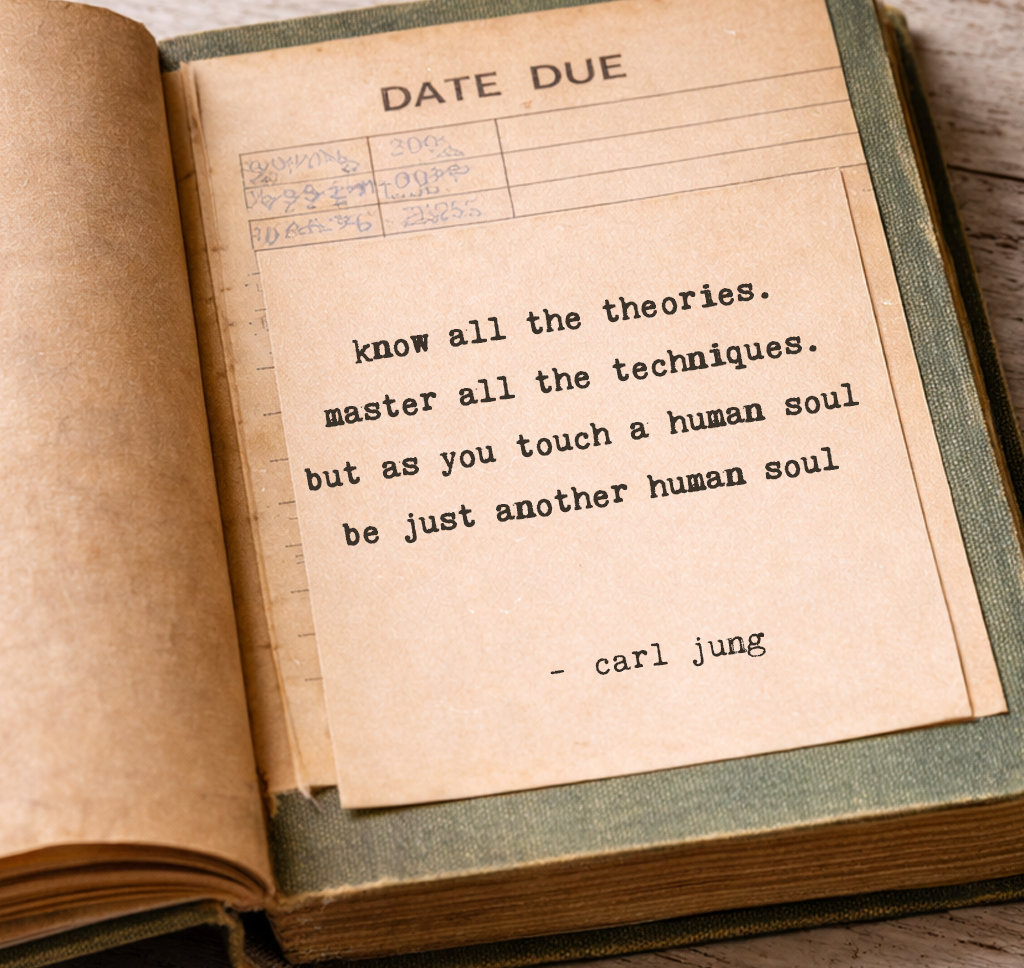 DATE DUE
know all the theories.
master all the techniques.
but as you touch a human soul
be just another human soul
- carl jung